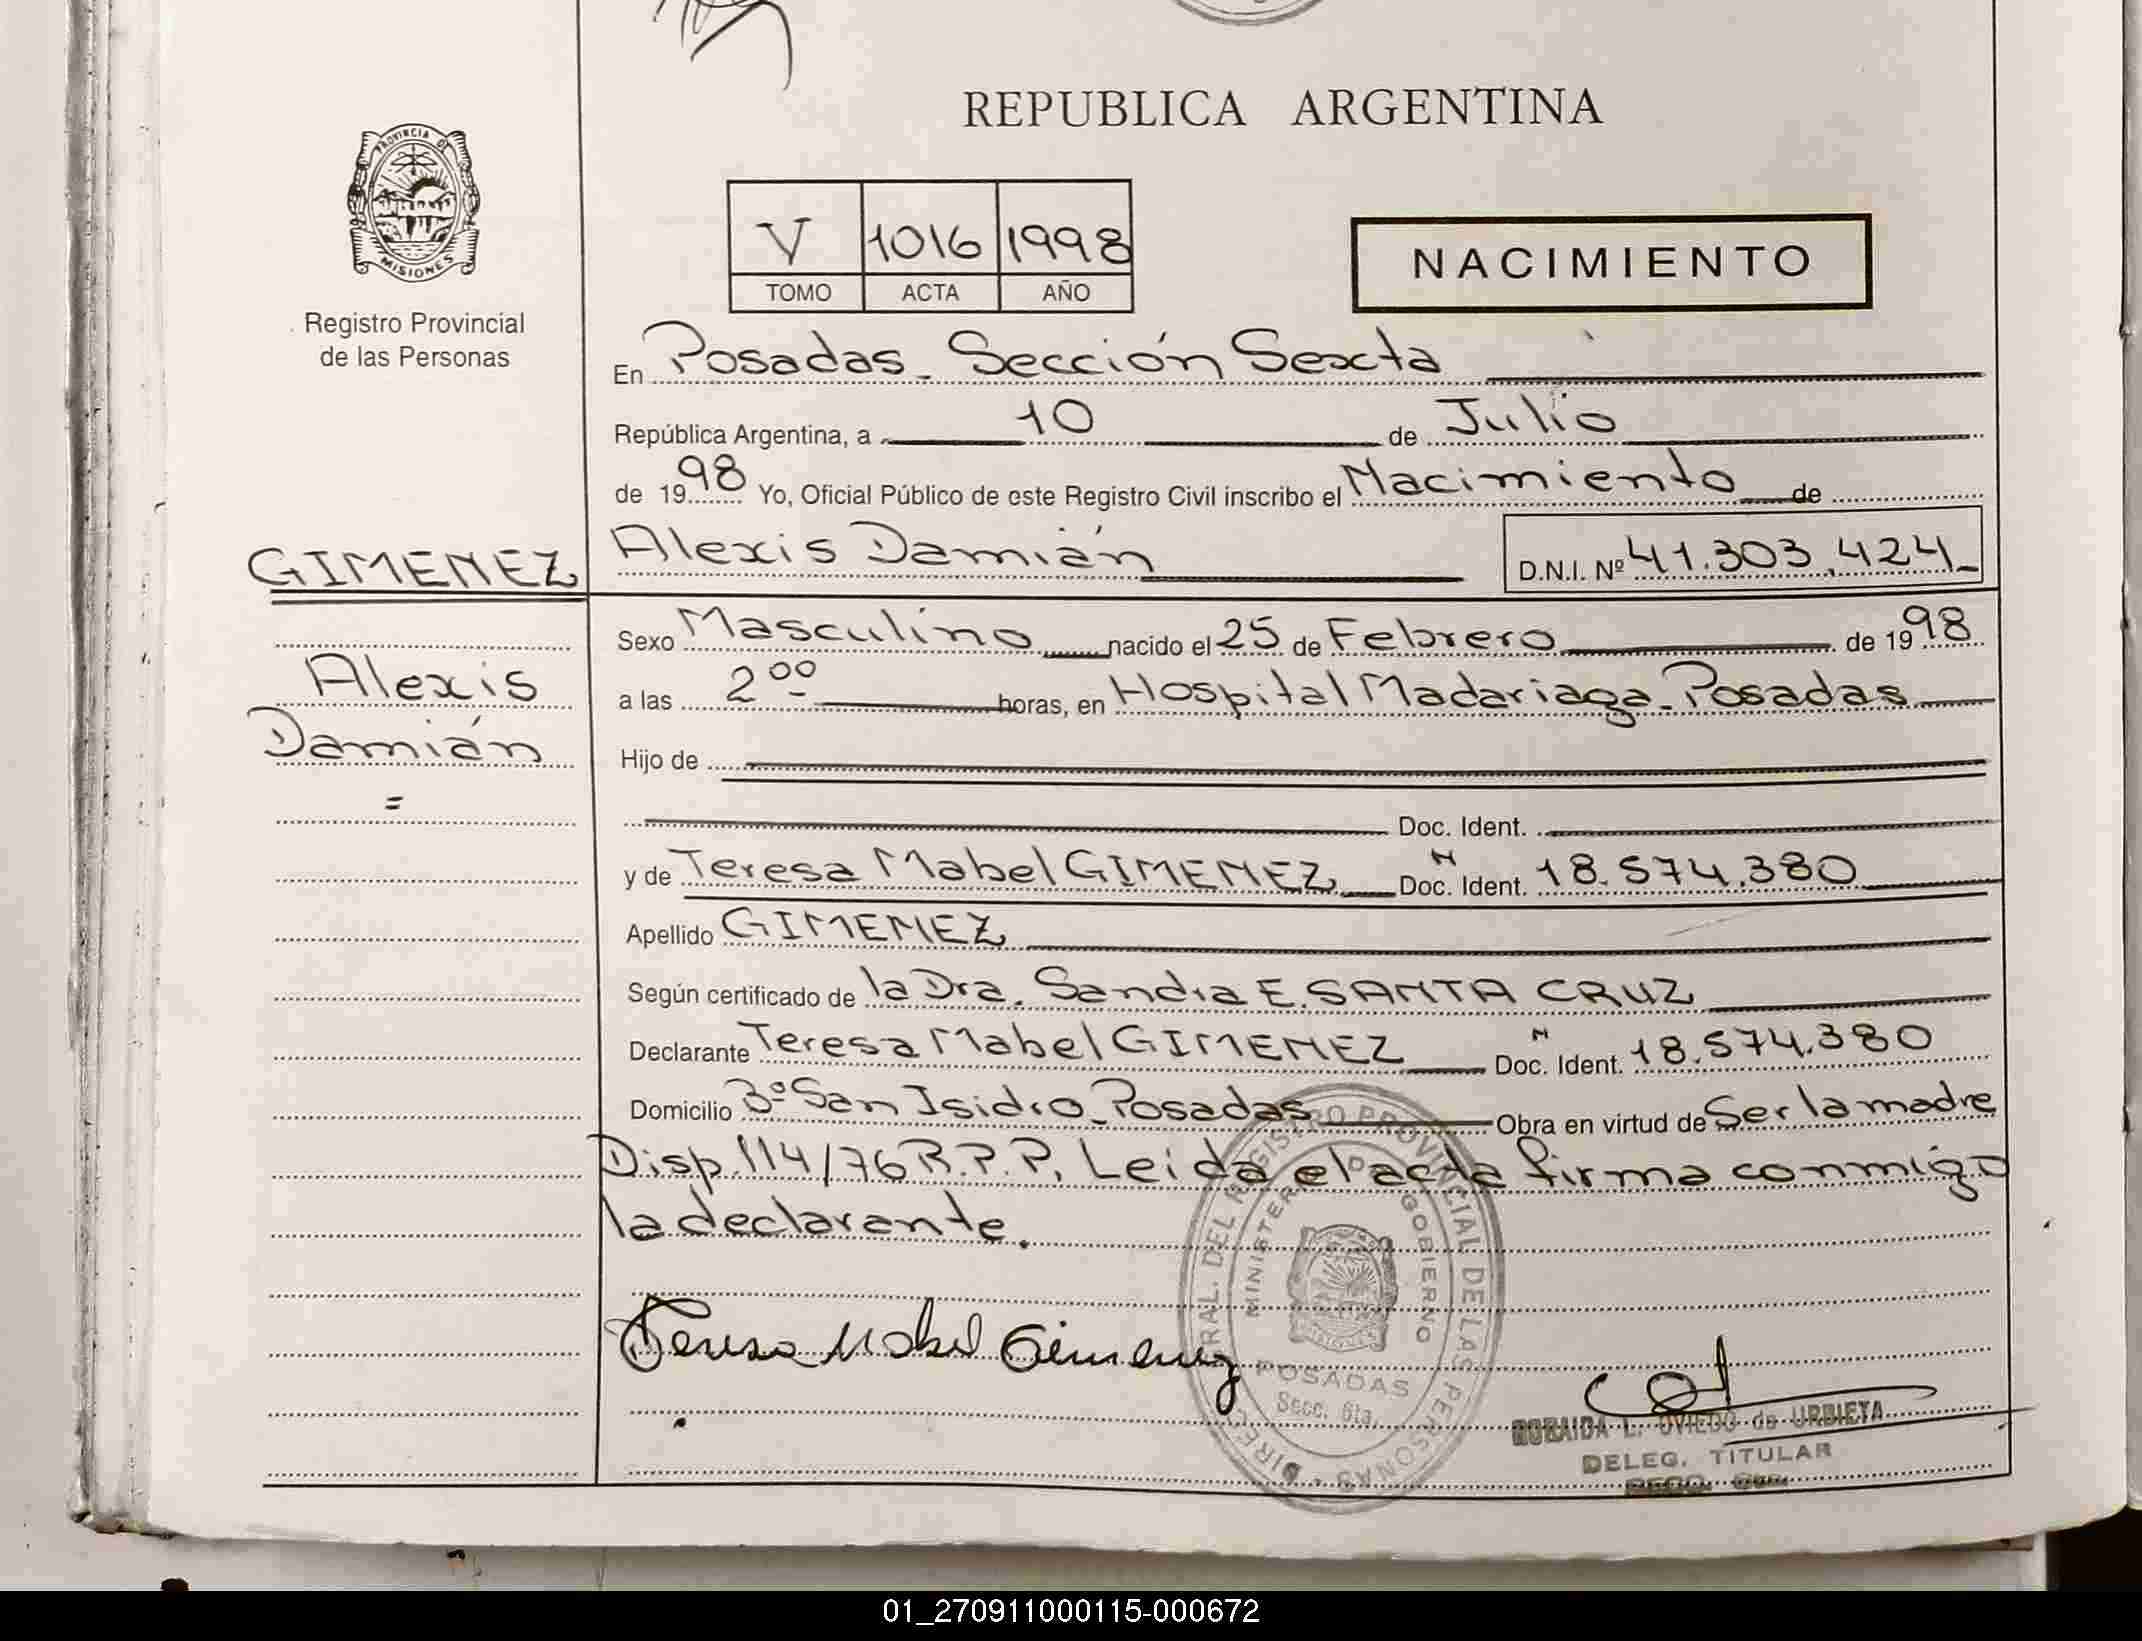 REPUBLICA ARGENTINA
PROVINCIA DE
MISIONES
Registro Provincial
de las Personas
V 1016 1998
TOMO ACTA AÑO
NACIMIENTO
En Posadas - Sección Sexta
República Argentina, a 10 de Julio
de 1998 Yo, Oficial Público de este Registro Civil inscribo el Nacimiento de
GIMENEZ Alexis Damián D.N.I. Nº 41.303.424
Sexo Masculino nacido el 25 de Febrero de 1998
Alexis
a las 2 00 horas, en Hospital Madariaga - Posadas
Damián
Hijo de
=
Doc. Ident.
y de Teresa Mabel GIMENEZ Doc. N Ident. 18.574.380
Apellido GIMENEZ
Según certificado de la Dra. Sandra E. SANTA CRUZ
Declarante Teresa Mabel GIMENEZ Doc. N Ident. 18.574.380
Domicilio 3º San Isidro - Posadas Obra en virtud de Ser la madre
Disp. 114/76 R.P.P. Leida el acta firma conmigo
la declarante.
Teresa Mabel Gimenez
REGISTRO PROVINCIAL DE LAS PERSONAS
GOBIERNO
POSADAS
Secc. 6ta.
L. OVIEDO de URBIETA
DELEG. TITULAR
01_270911000115-000672